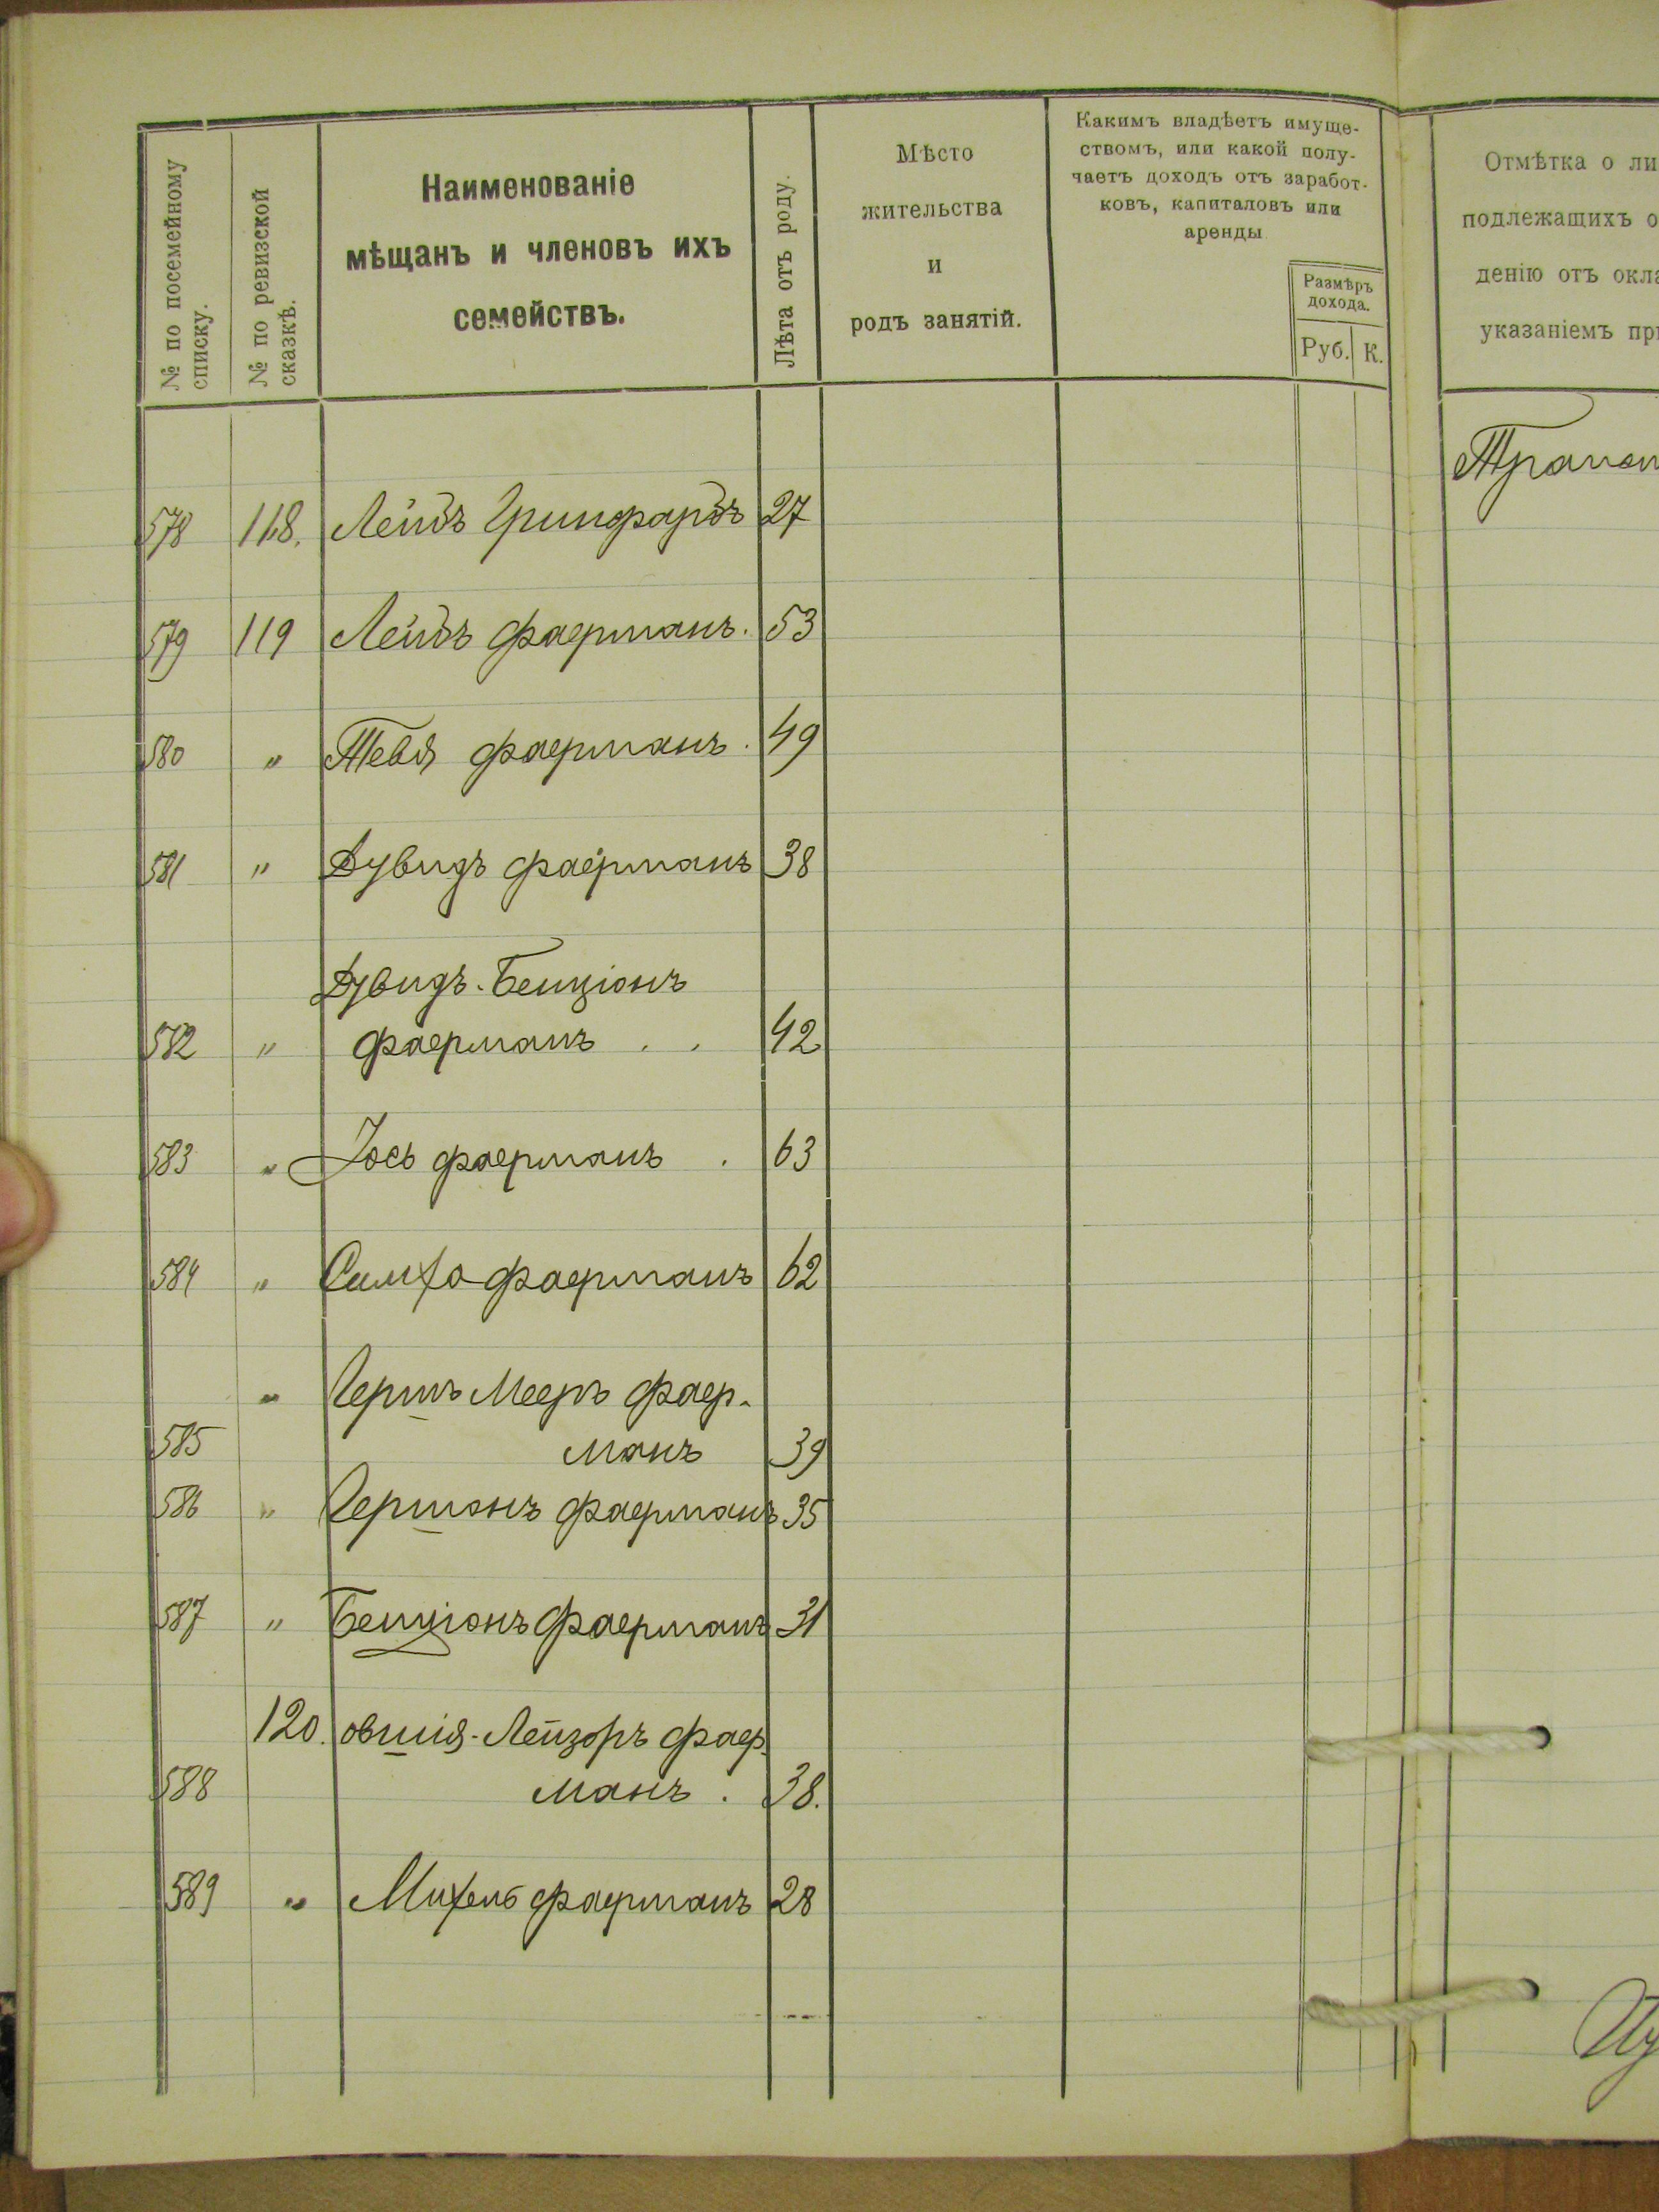 № по посемейному
списку.
№ по ревизской
сказкѣ.
Наименованіе
мѣщанъ и членовъ ихъ
семействъ.
Лѣта отъ роду.
Мѣсто
жительства
и
родъ занятій.
Какимъ владѣетъ имуще-
ствомъ, или какой полу-
чаетъ доходъ отъ заработ-
ковъ, капиталовъ или
аренды
Размѣръ
дохода.
Руб. К.
Отмѣтка о ли
подлежащихъ о
денію отъ окла
указаніемъ при
578 118. Лейбъ Гринфарбъ 27
579 119 Лейбъ Фаерманъ. 53
580 " Тевя Фаерманъ. 49
581 " Дувидъ Фаерманъ 38
Дувидъ-Бенціонъ
582 " Фаерманъ . . 42
583 " Іось Фаерманъ . 63
584 " Симха Фаерманъ 62
" Гершъ Мееръ Фаер-
585 манъ 39
586 " Гершонъ Фаерманъ 35
587 " Бенціонъ Фаерманъ 31
120. Овшія-Лейзоръ Фаер-
588 манъ . 38.
589 " Михель Фаерманъ 28